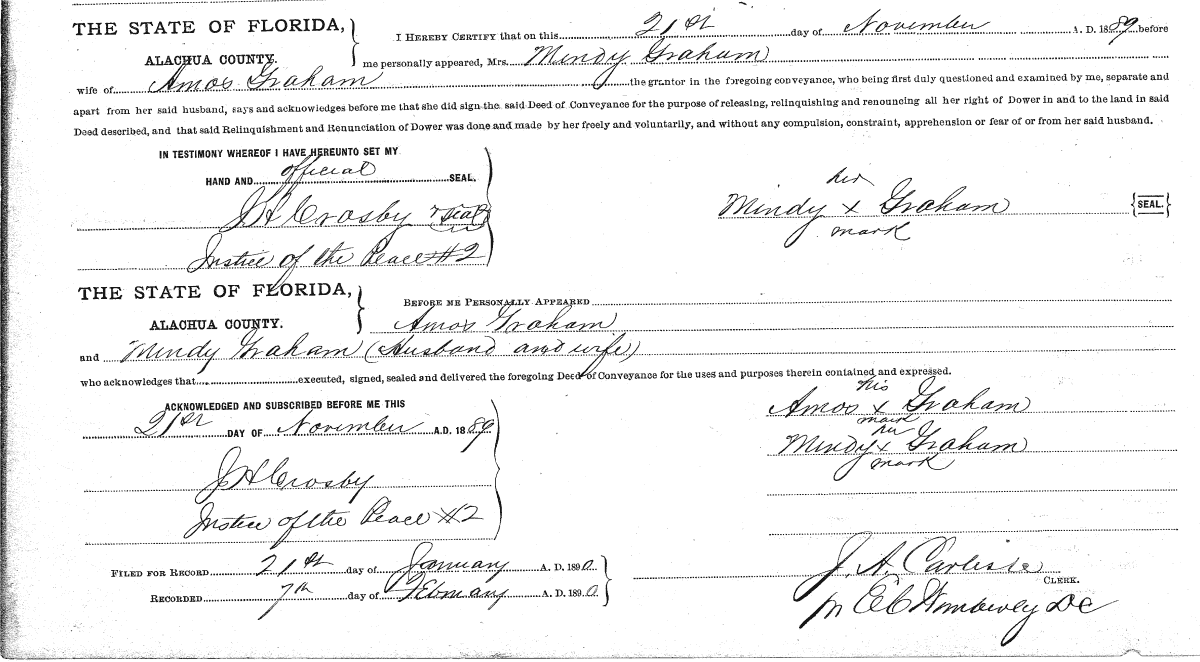 THE STATE OF FLORIDA,
ALACHUA COUNTY.
I HEREBY CERTIFY that on this 21st day of November A. D. 1889 before
me personally appeared, Mrs. Mindy Graham
wife of Amos Graham the grantor in the foregoing conveyance, who being first duly questioned and examined by me, separate and
apart from her said husband, says and acknowledges before me that she did sign the said Deed of Conveyance for the purpose of releasing, relinquishing and renouncing all her right of Dower in and to the land in said
Deed described, and that said Relinquishment and Renunciation of Dower was done and made by her freely and voluntarily, and without any compulsion, constraint, apprehension or fear of or from her said husband.
IN TESTIMONY WHEREOF I HAVE HEREUNTO SET MY
HAND AND official SEAL.
J A Crosby
seal
Justice of the Peace #2
her
Mindy x Graham
mark
SEAL.
THE STATE OF FLORIDA,
ALACHUA COUNTY.
BEFORE ME PERSONALLY APPEARED
Amos Graham
and Mindy Graham (Husband and wife)
who acknowledges that executed, signed, sealed and delivered the foregoing Deed of Conveyance for the uses and purposes therein contained and expressed.
ACKNOWLEDGED AND SUBSCRIBED BEFORE ME THIS
21st DAY OF November A.D. 1889
J A Crosby
Justice of the Peace #2
his
Amos x Graham
mark
her
Mindy x Graham
mark
FILED FOR RECORD 21st day of January A. D. 1890.
RECORDED 7th day of February A. D. 1890.
J. A. Carlisle
CLERK.
E C Wimberley DC